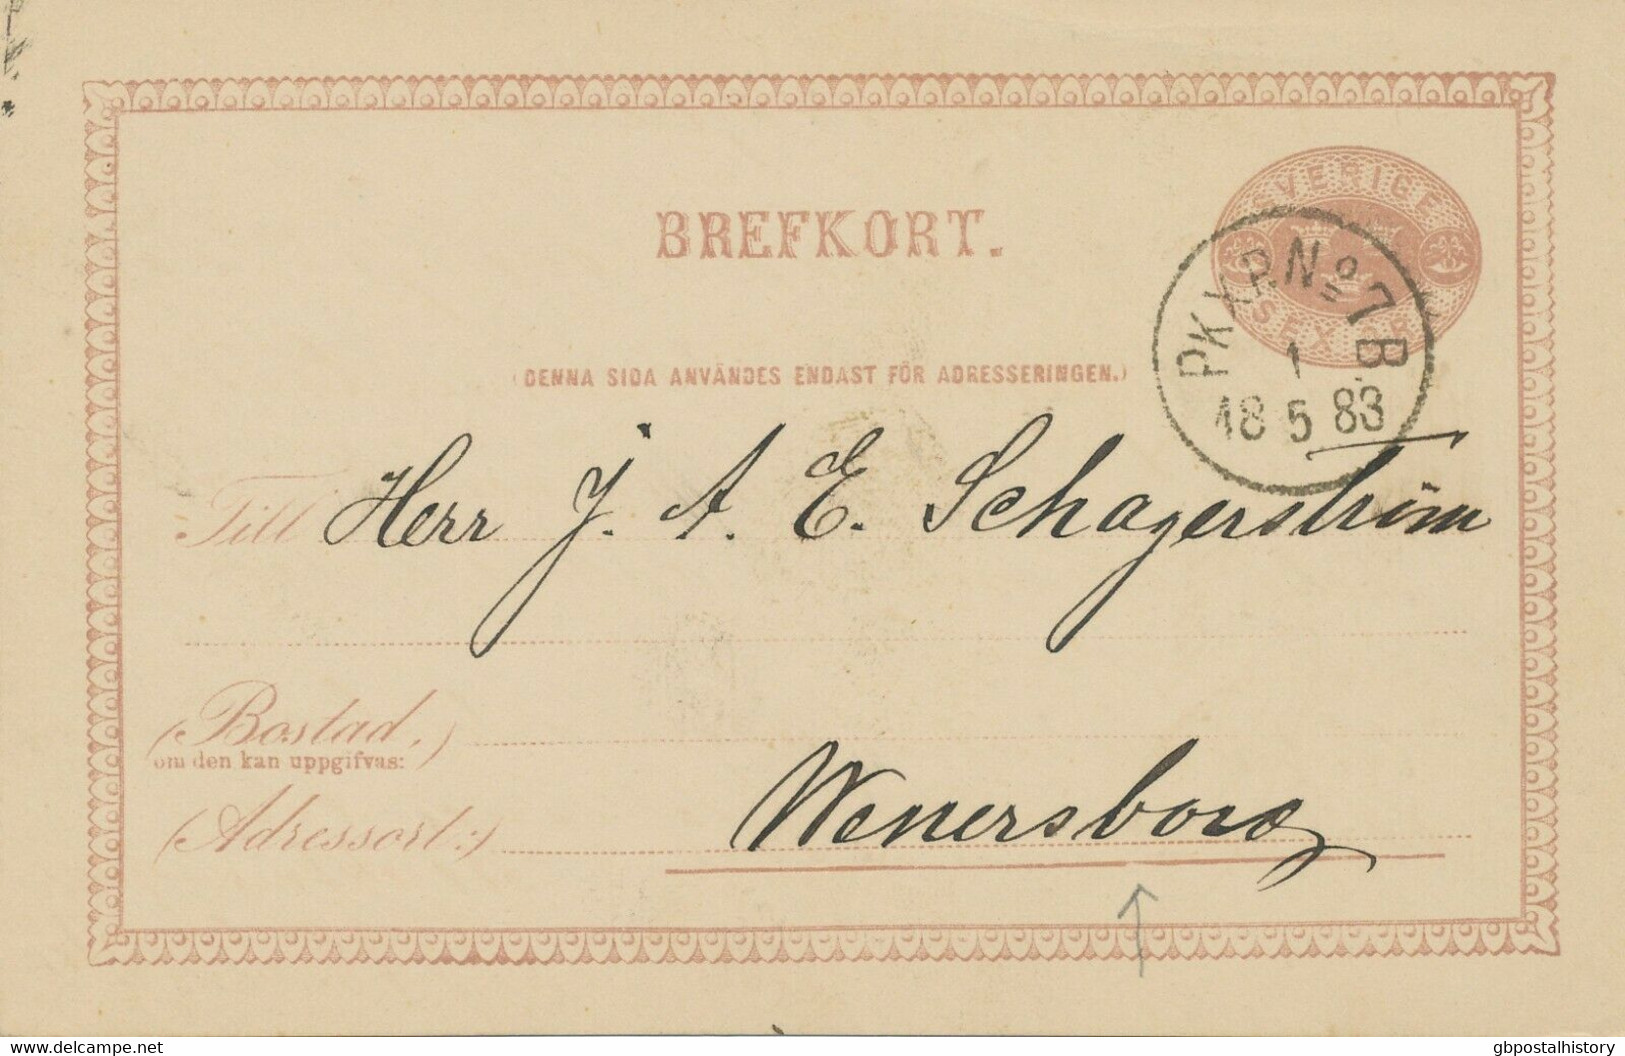 SVERIGE
SEX ÖRE
BREFKORT.
PKXP. No 7 B.
1
18 5 83
(DENNA SIDA ANVÄNDES ENDAST FÖR ADRESSERINGEN.)
Till Herr J. A. E. Schagerström
(Bostad,)
om den kan uppgifvas:
(Adressort:) Wenersborg
www.delcampe.net
gbpostalhistory